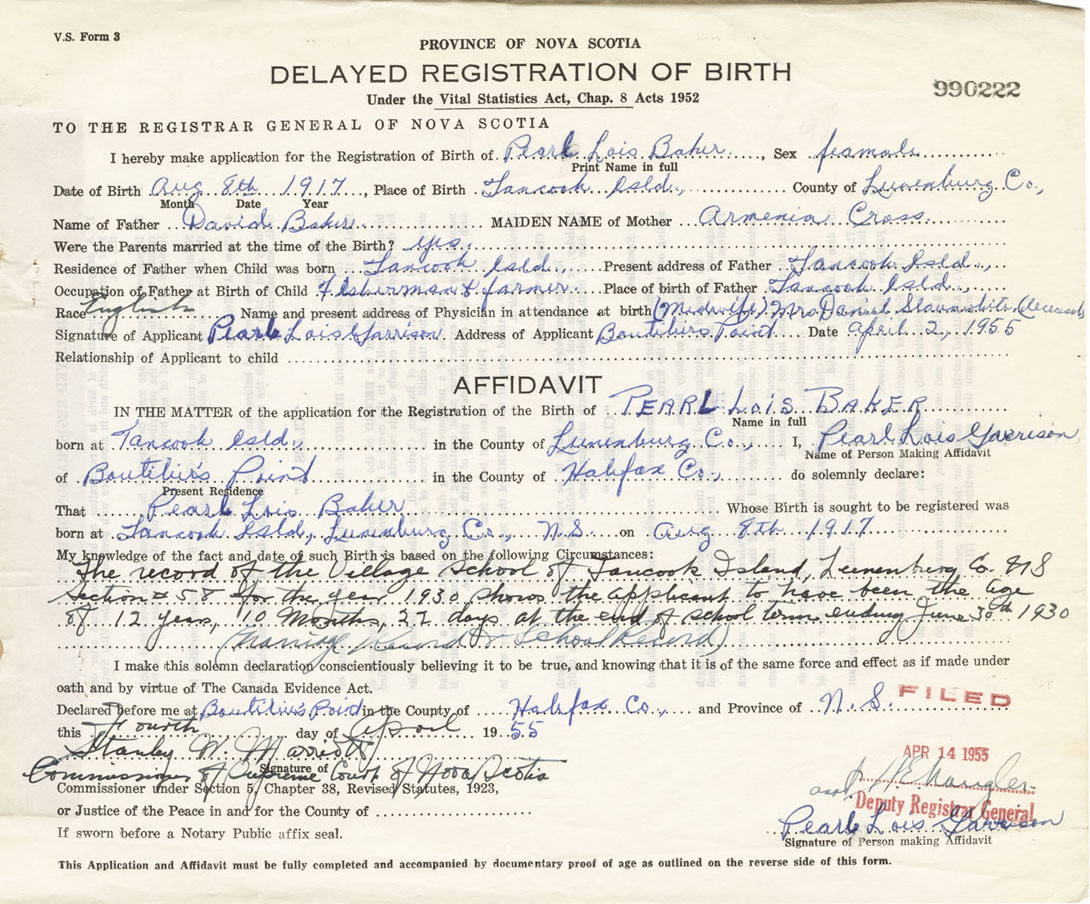 V.S. Form 3
PROVINCE OF NOVA SCOTIA
DELAYED REGISTRATION OF BIRTH
990222
Under the Vital Statistics Act, Chap. 8 Acts 1952
TO THE REGISTRAR GENERAL OF NOVA SCOTIA
I hereby make application for the Registration of Birth of Pearl Lois Baker, Sex feamale
Print Name in full
Date of Birth Aug 8th 1917, Place of Birth Tancook Isld., County of Lunenburg Co.,
Month Date Year
Name of Father David Baker MAIDEN NAME of Mother Armenia Cross
Were the Parents married at the time of the Birth? yes.
Residence of Father when Child was born Tancook Isld., Present address of Father Tancook Isld.,
Occupation of Father at Birth of Child Fisherman & farmer Place of birth of Father Tancook Isld.,
Race English Name and present address of Physician in attendance at birth (Midwife) Mrs Daniel (deceased)
Signature of Applicant Pearl Lois Garrison Address of Applicant Boutilier's Point Date April 2, 1955
Relationship of Applicant to child
AFFIDAVIT
IN THE MATTER of the application for the Registration of the Birth of PEARL LOIS BAKER
Name in full
born at Tancook Isld., in the County of Lunenburg Co., I, Pearl Lois Garrison
Name of Person Making Affidavit
of Boutilier's Point in the County of Halifax Co., do solemnly declare:
Present Residence
That Pearl Lois Baker Whose Birth is sought to be registered was
born at Tancook Isld., Lunenburg Co., N.S. on Aug 8th 1917
My knowledge of the fact and date of such Birth is based on the following Circumstances:
The record of the Village School of Tancook Island, Lunenburg Co. NS
Section # 58 for the year 1930 shows the applicant to have been the age
of 12 years, 10 Months, 22 days at the end of school term ending June 30th 1930
(Marriage Record & School Record)
I make this solemn declaration conscientiously believing it to be true, and knowing that it is of the same force and effect as if made under
oath and by virtue of The Canada Evidence Act.
Declared before me at Boutilier's Point in the County of Halifax Co., and Province of N.S.
FILED
this Fourth day of April 1955
Stanley W. Marriott
Signature of
Commissioner of Supreme Court of Nova Scotia
APR 14 1955
Commissioner under Section 5, Chapter 38, Revised Statutes, 1923,
Deputy Registrar General
or Justice of the Peace in and for the County of
Pearl Lois Garrison
If sworn before a Notary Public affix seal.
Signature of Person making Affidavit
This Application and Affidavit must be fully completed and accompanied by documentary proof of age as outlined on the reverse side of this form.